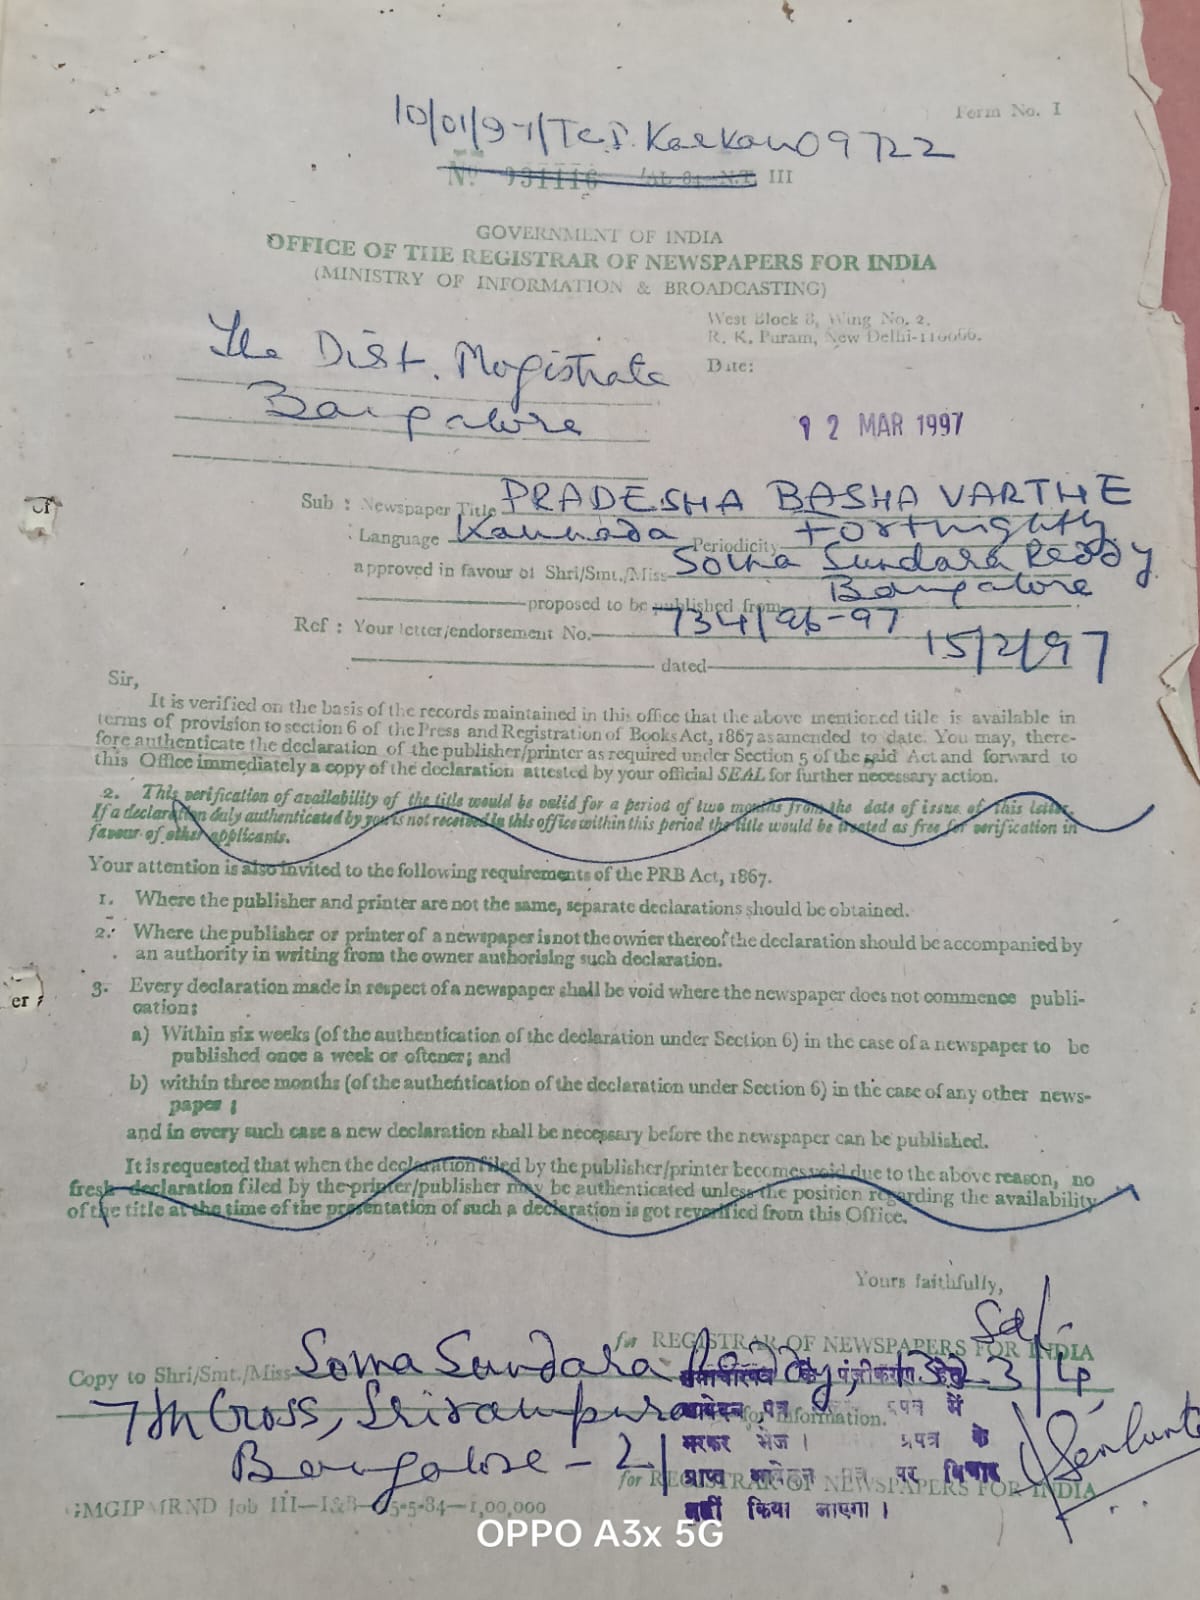 Form No. I
10/01/97/TC.I. Karkan09722
No. 931116 /AL-84-N.T. III
GOVERNMENT OF INDIA
OFFICE OF THE REGISTRAR OF NEWSPAPERS FOR INDIA
(MINISTRY OF INFORMATION & BROADCASTING)
West Block 8, Wing No. 2,
R. K. Puram, New Delhi-110066.
Date:
The Dist. Magistrate
Bangalore
12 MAR 1997
Sub : Newspaper Title PRADESHA BASHA VARTHE
Language Kannada Periodicity Fortnightly
approved in favour of Shri/Smt./Miss Soma Sundara Reddy
proposed to be published from Bangalore
Ref : Your letter/endorsement No. 734/96-97
dated 15/2/97
Sir,
It is verified on the basis of the records maintained in this office that the above mentioned title is available in
terms of provision to section 6 of the Press and Registration of Books Act, 1867 as amended to date. You may, there-
fore authenticate the declaration of the publisher/printer as required under Section 5 of the said Act and forward to
this Office immediately a copy of the declaration attested by your official SEAL for further necessary action.
2. This verification of availability of the title would be valid for a period of two months from the date of issue of this letter.
If a declaration duly authenticated by you is not received in this office within this period the title would be treated as free for verification in
favour of other applicants.
Your attention is also invited to the following requirements of the PRB Act, 1867.
1. Where the publisher and printer are not the same, separate declarations should be obtained.
2. Where the publisher or printer of a newspaper is not the owner thereof the declaration should be accompanied by
an authority in writing from the owner authorising such declaration.
3. Every declaration made in respect of a newspaper shall be void where the newspaper does not commence publi-
cation;
a) Within six weeks (of the authentication of the declaration under Section 6) in the case of a newspaper to be
published once a week or oftener; and
b) within three months (of the authentication of the declaration under Section 6) in the case of any other news-
paper ;
and in every such case a new declaration shall be necessary before the newspaper can be published.
It is requested that when the declaration filed by the publisher/printer becomes void due to the above reason, no
fresh declaration filed by the printer/publisher may be authenticated unless the position regarding the availability
of the title at the time of the presentation of such a declaration is got reverified from this Office.
Yours faithfully,
Sd/-
for REGISTRAR OF NEWSPAPERS FOR INDIA
Copy to Shri/Smt./Miss Soma Sundara Reddy, 132-3/4
पंजीकरण
7th Cross, Srirampura for information.
आवेदन पत्र प्रपत्र में
भरकर भेजें । प्रपत्र के
Bangalore - 21
प्राप्त आवेदन पत्र पर विचार
for REGISTRAR OF NEWSPAPERS FOR INDIA
नहीं किया जाएगा ।
GMGIPMRND Job III—I&B—5-5-84—1,00,000
or
er
OPPO A3x 5G